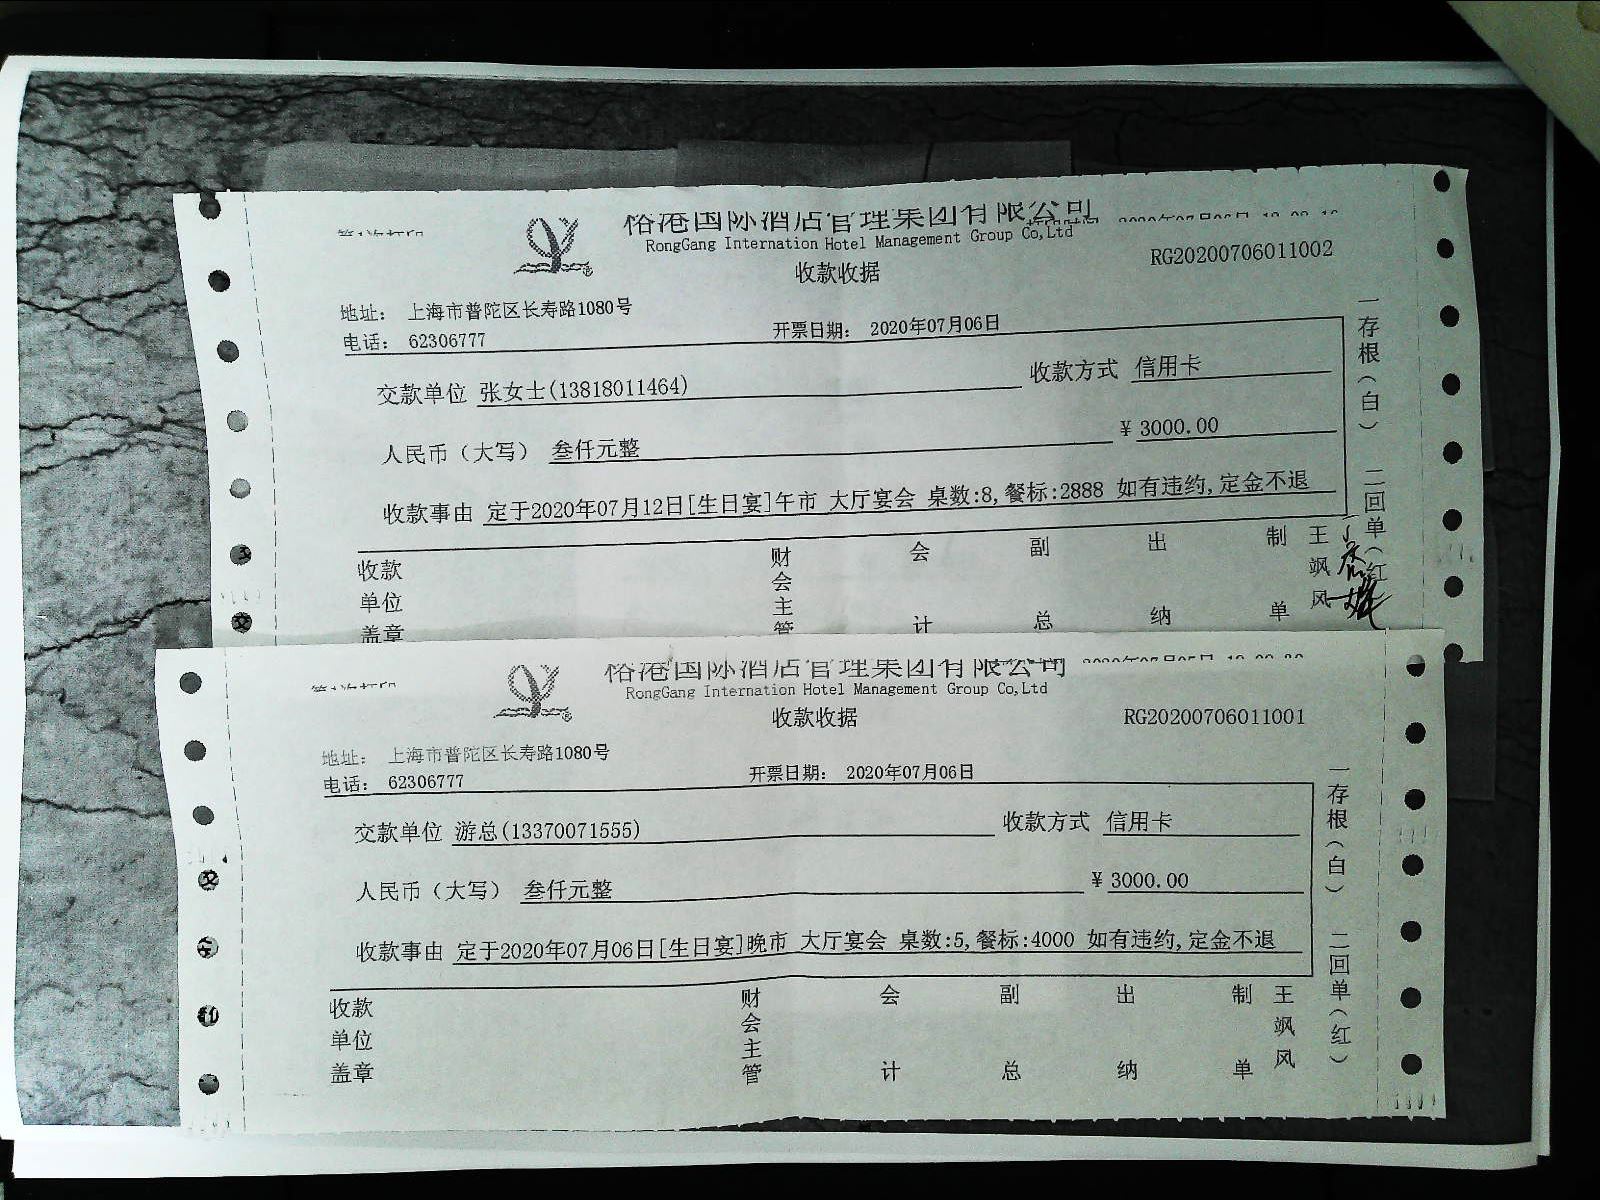 国际酒店管理集团有限公司
RongGang Internation Hotel Management Group Co,Ltd
收款收据
RG20200706011002
地址： 上海市普陀区长寿路1080号
电话： 62306777
开票日期： 2020年07月06日
交款单位 张女士(13818011464)
收款方式 信用卡
人民币（大写） 叁仟元整
¥ 3000.00
收款事由 定于2020年07月12日[生日宴]午市 大厅宴会 桌数:8,餐标:2888 如有违约,定金不退
收款单位盖章
财会主管
会计
副总
出纳
制单
王飒风
一存根（白） 二回单（红
国际酒店管理集团有限公司
RongGang Internation Hotel Management Group Co,Ltd
收款收据
RG20200706011001
地址： 上海市普陀区长寿路1080号
电话： 62306777
开票日期： 2020年07月06日
交款单位 游总(13370071555)
收款方式 信用卡
人民币（大写） 叁仟元整
¥ 3000.00
收款事由 定于2020年07月06日[生日宴]晚市 大厅宴会 桌数:5,餐标:4000 如有违约,定金不退
收款单位盖章
财会主管
会计
副总
出纳
制单
王飒风
一存根（白） 二回单（红）